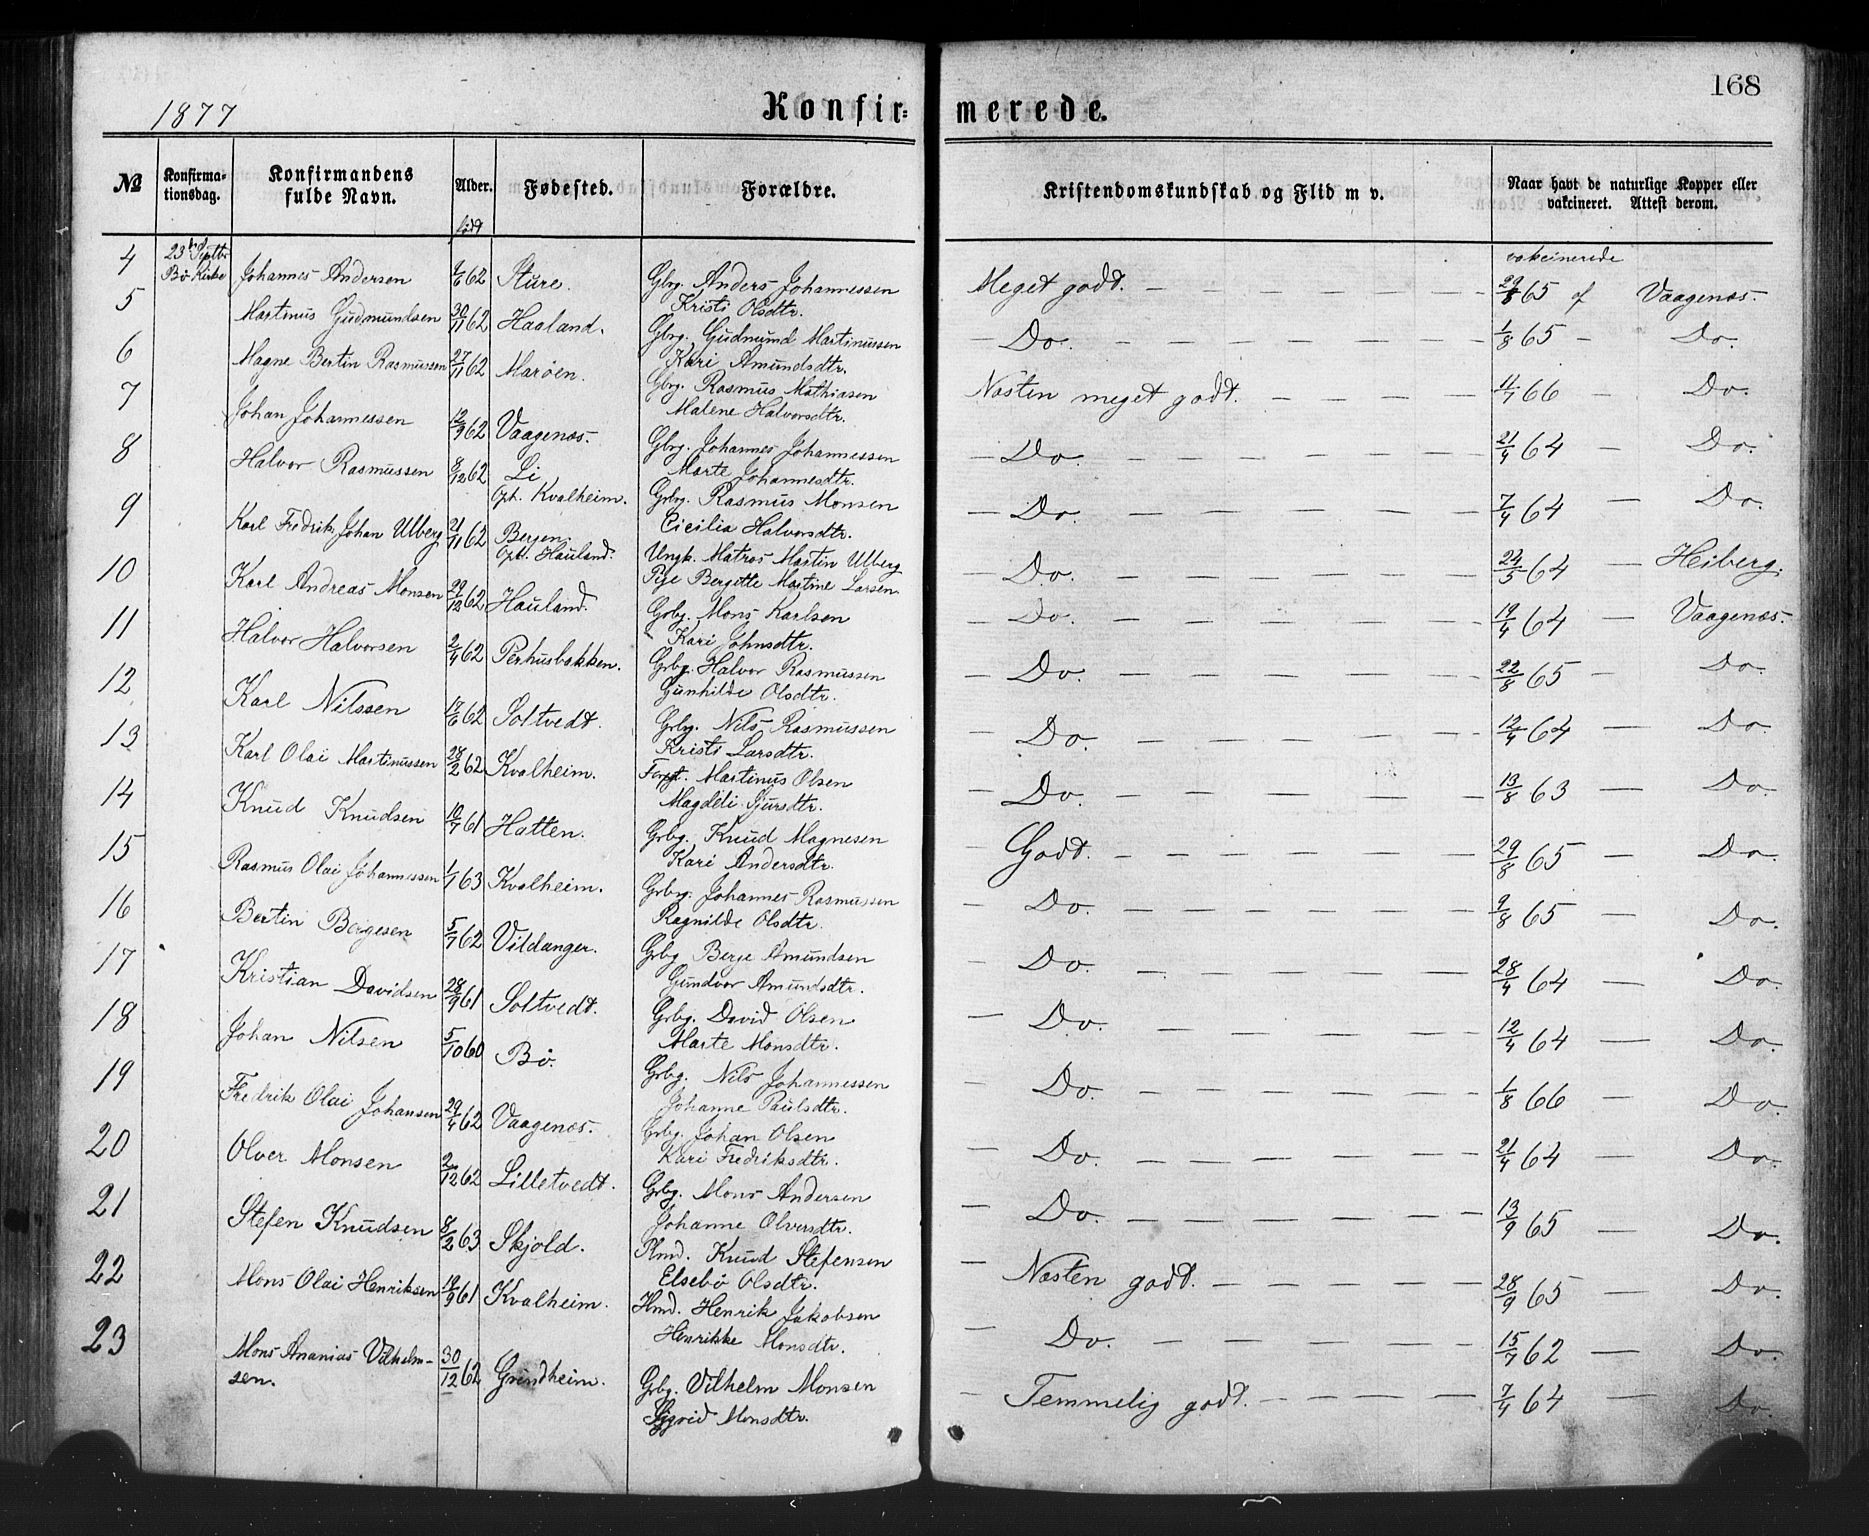 168
1877
Konfir=
merede.
№ Konfirma-tionsdag. Konfirmandens fulde Navn. Alder. Fødested. Forældre. Kristendomskundskab og Flid m v. Naar havt de naturlige Kopper eller vakcineret. Attest derom.
født
23de Septbr
vakcinerede
4 Bö Kirke Johannes Andersen 62 Sture. Gbrg. Anders Johannessen Meget godt. — 29/8 65 af Vaagenæs.
Kristi Olsdtr.
5 Martinus Gudmundsen 30/11 62 Haaland. Gbrg. Gudmund Martinussen — Do. — 1/8 65 — Do.
Kari Amundsdtr.
6 Magne Bertin Rasmussen 27/11 62 Maröen. Gbrg. Rasmus Mathiasen Næsten meget godt. — 11/7 66 — Do.
Malene Halvorsdtr.
7 Johan Johannessen 12/9 62 Vaagenæs. Gbrg. Johannes Johannessen — Do. — 21/4 64 — Do.
Marte Johannesdtr.
8 Halvor Rasmussen 8/12 62 Li Grbrg. Rasmus Monsen — Do. — 7/4 64 — Do.
Oph. Kvalheim. Cicilia Halvorsdtr.
9 Karl Fredrik Johan Ulberg 21/11 62 Bergen Ungk. Matros Martin Ulberg — Do. — 24/5 64 — Heiberg.
Oph. Hauland. Pige Bergitte Martine Larsen
10 Karl Andreas Monsen 29/12 62 Hauland. Grbg. Mons Karlsen — Do. — 19/4 64 — Vaagenæs.
Kari Johnsdtr.
11 Halvor Halvorsen 2/4 62 Perhusbakken. Grbg. Halvor Rasmussen — Do. — 22/8 65 — Do.
Gunhilde Olsdtr.
12 Karl Nilssen 17/6 62 Soltvedt. Grbg. Nils Rasmussen — Do. — 12/4 64 — Do.
Kristi Larsdtr.
13 Karl Olai Martinussen 28/2 62 Kvalheim. Forpt. Martinus Olsen — Do. — 13/8 63 — Do.
Magdeli Sjursdtr.
14 Knud Knudsen 10/7 61 Hatten. Grbg. Knud Magnesen Godt. — 29/8 65 — Do.
Kari Andersdtr.
15 Rasmus Olai Johannessen 1/1 63 Kvalheim. Grbrg. Johannes Rasmussen — Do. — 9/8 65 — Do.
Ragnilde Olsdtr.
16 Bertin Bergesen 5/7 62 Vildanger. Grbg Berge Amundsen — Do. — 28/4 64 — Do.
Gundvor Amundsdtr.
17 Kristian Davidsen 28/9 61 Soltvedt. Grbg. David Olsen — Do. — 12/4 64 — Do.
Marte Monsdtr.
18 Johan Nilsen 5/10 60 Bö. Grbg. Nils Johannessen — Do. — 1/8 66 — Do.
Johanne Paulsdtr.
19 Fredrik Olai Johansen 29/4 62 Vaagenæs. Grbg. Johan Olsen — Do. — 21/4 64 — Do.
Kari Fredriksdtr.
20 Olver Monsen 2/12 62 Lilletvedt. Grbg. Mons Andersen — Do. — 13/9 65 — Do.
Johanne Olversdtr.
21 Stefen Knudsen 8/2 63 Skjold. Plmd. Knud Stefensen — Næsten godt. — 28/9 65 — Do.
Elsebö Olsdtr.
22 Mons Olai Henriksen 19/9 61 Kvalheim. Hmd. Henrik Jakobsen — Do. — 15/7 62 — Do.
Henrikke Monsdtr.
23 Mons Ananias Vilhelm- 30/12 62 Grindheim. Grbg. Vilhelm Monsen — Temmelig godt. — 7/4 64 — Do.
sen. Sigvid Monsdtr.